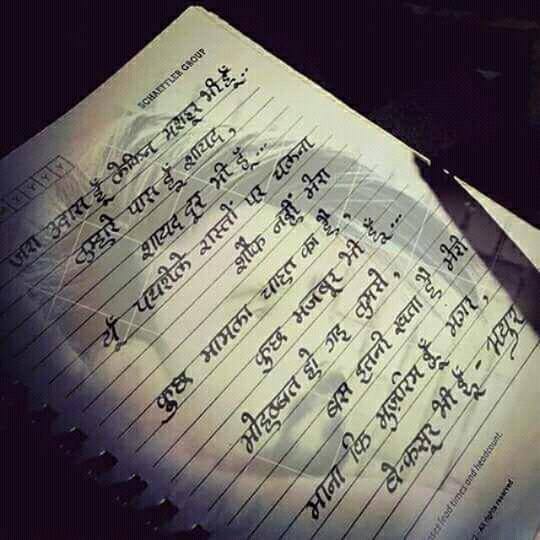 SCHAEFFLER GROUP
Y Y Y Y
ज़रा उदास हूँ लेकिन मग़रूर भी हूँ...
तुम्हारे पास हूँ शायद,
शायद दूर भी हूँ...
यूँ पथरीले रास्तों पर चलना
शौक नहीं मेरा
कुछ मामला चाहत का है,
कुछ मजबूर भी हूँ...
मोहब्बत हो गई तुमसे,
बस इतनी ख्यता है मेरी
माना कि मुज़रिम हूँ मगर,
बे-कसूर भी हूँ - मयुरा
lead times and headcount.
All rights reserved